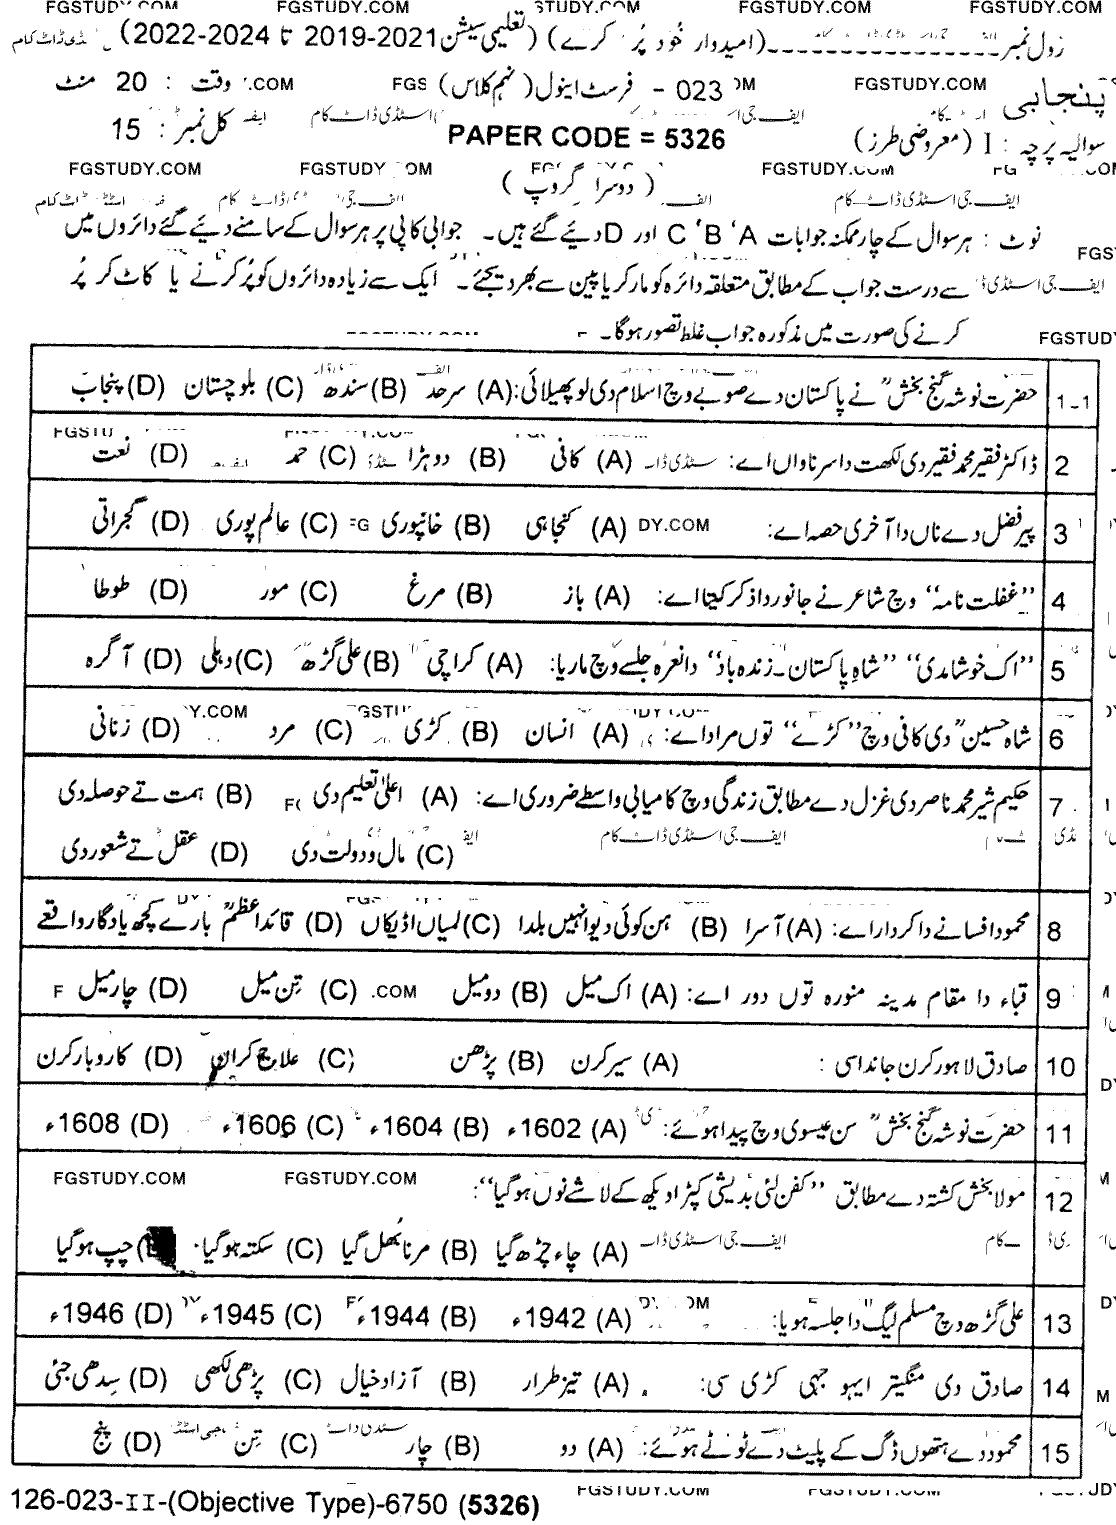 FGSTUDY.COM FGSTUDY.COM STUDY.COM FGSTUDY.COM FGSTUDY.COM
رول نمبر۔۔۔۔۔۔۔۔۔۔۔۔۔۔۔۔(امیدوار خود پُر کرے) (تعلیمی سیشن 2021-2019 تا 2024-2022)
پنجابی 023 - فرسٹ اینول (نہم کلاس) وقت : 20 منٹ
سوالیہ پرچہ : I (معروضی طرز) PAPER CODE = 5326 کل نمبر : 15
FGSTUDY.COM FGSTUDY.COM FGSTUDY.COM
(دوسرا گروپ)
نوٹ : ہر سوال کے چار ممکنہ جوابات A ‘B ‘C اور D دیئے گئے ہیں۔ جوابی کاپی پر ہر سوال کے سامنے دیئے گئے دائروں میں
سے درست جواب کے مطابق متعلقہ دائرہ کو مارکر یا پین سے بھر دیجئے۔ ایک سے زیادہ دائروں کو پُر کرنے یا کاٹ کر پُر
کرنے کی صورت میں مذکورہ جواب غلط تصور ہوگا۔
1-1 حضرت نوشہ گنج بخشؒ نے پاکستان دے صوبے وچ اسلام دی لو پھیلائی: (A) سرحد (B) سندھ (C) بلوچستان (D) پنجاب
2 ڈاکٹر فقیر محمد فقیر دی لکھت دا سرناواں اے: (A) کافی (B) دوہڑا (C) حمد (D) نعت
3 پیر فضل دے ناں دا آخری حصہ اے: (A) کنجاہی (B) خانپوری (C) عالم پوری (D) گجراتی
4 ’’غفلت نامہ‘‘ وچ شاعر نے جانور دا ذکر کیتا اے: (A) باز (B) مرغ (C) مور (D) طوطا
5 ’’اک خوشامدی‘‘ ’’شاہِ پاکستان۔زندہ باد‘‘ دا نعرہ جلسے وچ ماریا: (A) کراچی (B) علی گڑھ (C) دہلی (D) آگرہ
6 شاہ حسینؒ دی کافی وچ ’’کڑے‘‘ توں مراد اے: (A) انسان (B) کڑی (C) مرد (D) زنانی
7 حکیم شیر محمد ناصر دی غزل دے مطابق زندگی وچ کامیابی واسطے ضروری اے: (A) اعلیٰ تعلیم دی (B) ہمت تے حوصلہ دی
(C) مال و دولت دی (D) عقل تے شعور دی
8 محمود افسانے دا کردار اے: (A) آسرا (B) ہن کوئی دیوا نہیں بلدا (C) لمیاں اڈیکاں (D) قائداعظمؒ بارے کجھ یادگار واقعے
9 قباء دا مقام مدینہ منورہ توں دور اے: (A) اک میل (B) دو میل (C) تِن میل (D) چار میل
10 صادق لاہور کرن جاندا سی : (A) سیر کرن (B) پڑھن (C) علاج کران (D) کاروبار کرن
11 حضرت نوشہ گنج بخشؒ سن عیسوی وچ پیدا ہوئے: (A) 1602ء (B) 1604ء (C) 1606ء (D) 1608ء
12 مولا بخش کشتہ دے مطابق ’’کفن لئی بدیشی کپڑا دیکھ کے لاشے نوں ہوگیا‘‘:
FGSTUDY.COM FGSTUDY.COM
(A) چاء چڑھ گیا (B) مرنا بُھل گیا (C) سکتہ ہوگیا چپ ہوگیا
13 علی گڑھ وچ مسلم لیگ دا جلسہ ہویا: (A) 1942ء (B) 1944ء (C) 1945ء (D) 1946ء
14 صادق دی منگیتر ایہو جہی کڑی سی: (A) تیز طرار (B) آزاد خیال (C) پڑھی لکھی (D) سِدھی جئی
15 محمود دے ہتھوں ڈگ کے پلیٹ دے ٹوٹے ہوئے: (A) دو (B) چار (C) تِن (D) پنج
126-023-II-(Objective Type)-6750 (5326)